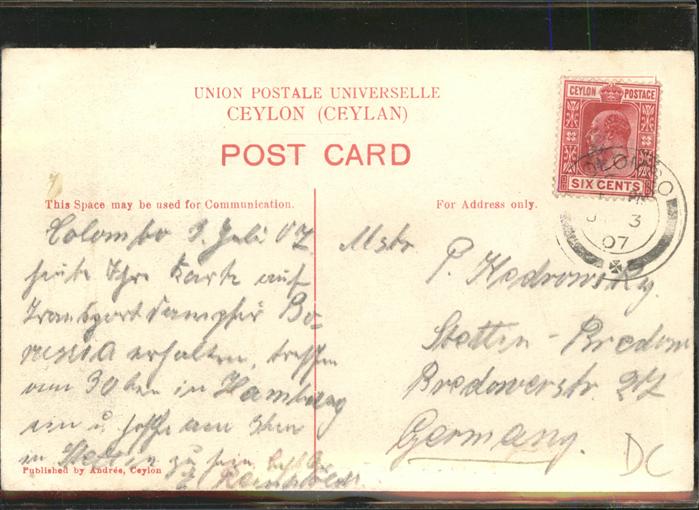 UNION POSTALE UNIVERSELLE
CEYLON (CEYLAN)
POST CARD
CEYLON POSTAGE
SIX CENTS
COLOMBO
3
07
This Space may be used for Communication.
Colombo 3. Juli 07.
heute Ihre Karte auf
Transportdampfer Bo-
russia erhalten, treffen
am 30ten in Hamburg
ein u. hoffe am 3ten
in Stettin zu sein
Reinhold
Published by Andrée, Ceylon
For Address only.
Mstr.
P. Kedrowsky.
Stettin - Bredow
Bredowerstr. 27
Germany.
DC